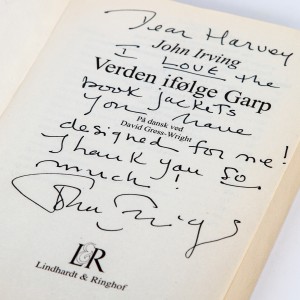 Dear Harvey
John Irving
I LOVE the
Verden ifølge Garp
book jackets
you have
På dansk ved
David Gress-Wright
designed for me!
Thank you so
much!
John Irving
L&R
Lindhardt & Ringhof